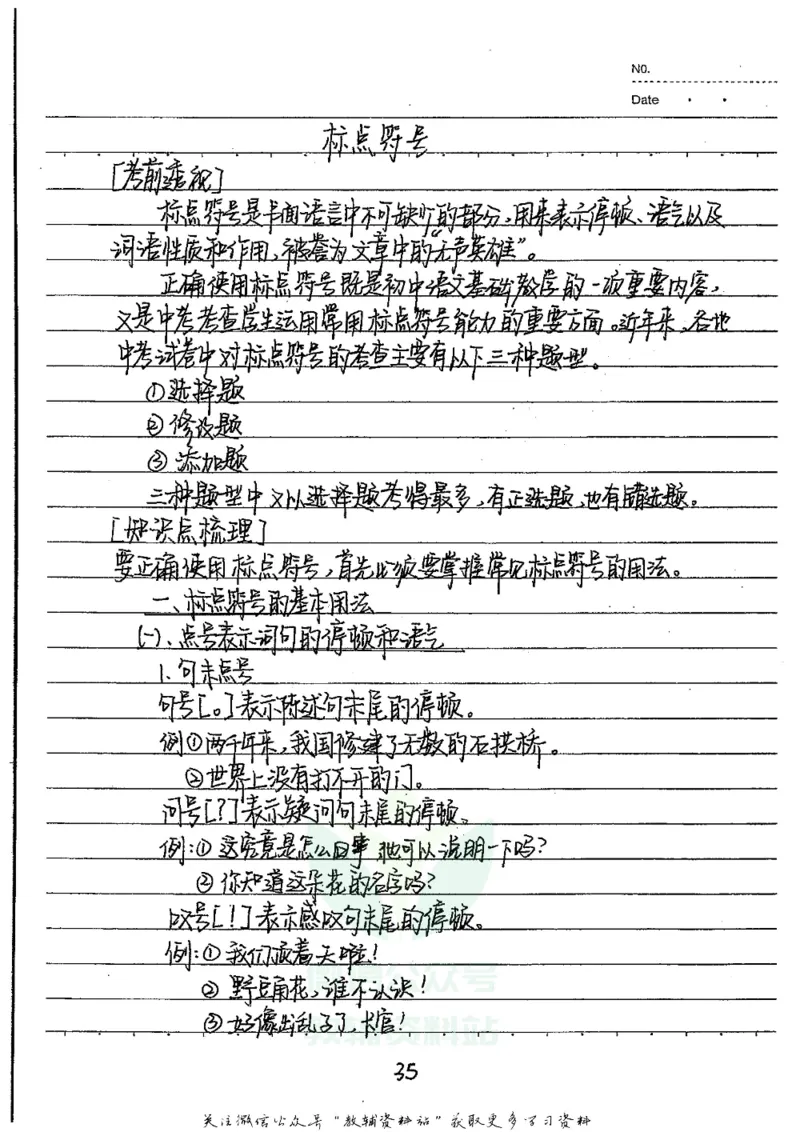 NO.
Date
标点符号
[考前透视]
标点符号是书面语言中不可缺少的部分，用来表示停顿、语气以及
词语性质和作用，被誉为文章中的“无声英雄”。
正确使用标点符号既是初中语文基础教学的一项重要内容，
又是中考考查学生运用常用标点符号能力的重要方面。近年来，各地
中考试卷中对标点符号的考查主要有以下三种题型。
①选择题
②修改题
③添加题
三种题型中又以选择题考得最多，有正选题，也有错选题。
[知识点梳理]
要正确使用标点符号，首先必须要掌握常见标点符号的用法。
一、标点符号的基本用法
(一)、点号表示词句的停顿和语气
1、句末点号
句号[。]表示陈述句末尾的停顿。
例①两千年来，我国修建了无数的石拱桥。
②世界上没有打不开的门。
问号[？]表示疑问句末尾的停顿。
例：①这究竟是怎么回事 他可以说明一下吗？
②你知道这朵花的名字吗？
叹号[！]表示感叹句末尾的停顿。
例：①我们顶着天啦！
②野豆角花，谁不认识！
③好像出乱子了，长官！
微信公众号
教辅资料站
35
关注微信公众号“教辅资料站”获取更多学习资料